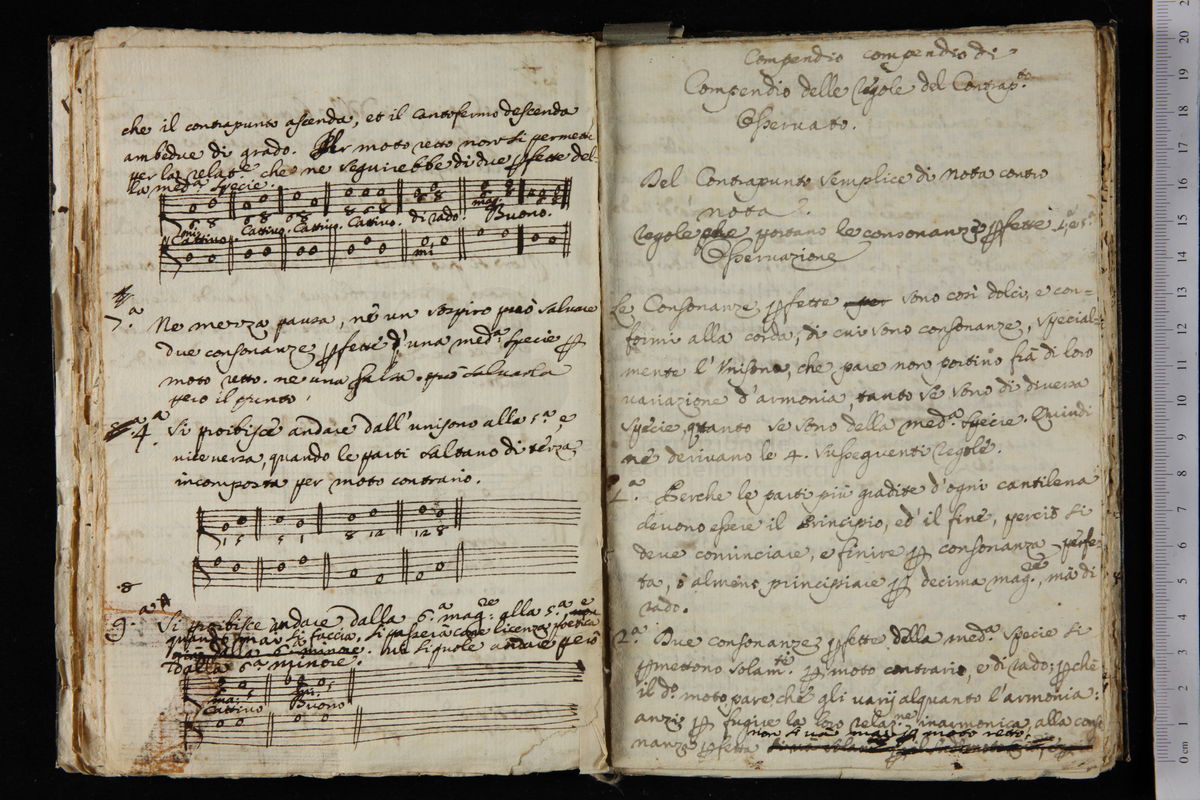 che il contrapunto ascenda, et il Cantofermo descenda
ambedue di grado. Per moto retto non si permette
per la relate che ne seguirebbe di due pfette del-
la meda specie.
6 8 6 8 6 8 8 6 8 6 8
mi
Cattivo. Cattivo. Cattivo. Cattivo. di rado. mag. Buono.
mi
7.a Ne mezza pausa, ne un sospiro può salvare
due consonanze pfette d'una meda specie p
moto retto. ne una salva. può salvarla
pero il punto.
4.a Si proibisce andare dall'unisono alla 5.a, e
vice versa, quando le parti saltano di terza
incomposta per moto contrario.
1 5 5 1 8 12 12 8
8
9.a Si proibisce andare dalla 6.a magre: alla 5.a, e
quando mai si faccia, si passerà come licenza poetica
dalla 6.a minore. ne si puole andare però
dalla 6.a minore.
6 5 6 5
mag. mi.
Cattivo Buono
Compendio compendio di
Compendio delle Regole del Contrap.to
Osservato.
Del Contrapunto semplice di Nota contro
nota.
Regole che portano le consonanze pfette 1.a e 5.a
Osservazione
Le Consonanze pfette per sono così dolci, e con=
formi alla corda, di cui sono consonanze, special=
mente l'Unisono, che pare non portino fra di loro
variazione d'armonia, tanto se sono di diversa
specie, quanto se sono della meda specie. Quindi
ne derivano le 4. susseguenti Regole.
1.a Perche le parti più gradite d'ogni cantilena
devono essere il Principio, ed' il fine, perciò si
deve cominciare, e finire p consonanza perfe-
ta, ò almeno principiare p decima magre, mà di
rado.
2.a Due consonanze pfette della meda specie si
pmettono solamte p moto contrario, e di rado; pchè
il do moto pare che gli varij alquanto l'armonia:
anzi p fugire la loro relane inarmonica, alla conso
non si va mai p moto retto,
nanza pfetta